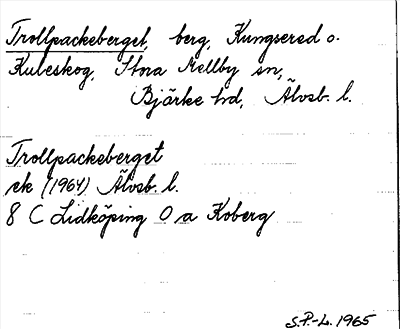 Trollpackeberget, berg, Kungsered o.
Kuleskog, Stora Mellby sn,
Bjärke hd, Älvsb. l.
Trollpackeberget
ek (1964) Älvsb. l.
8 C Lidköping O a Koberg
S.P.-L. 1965